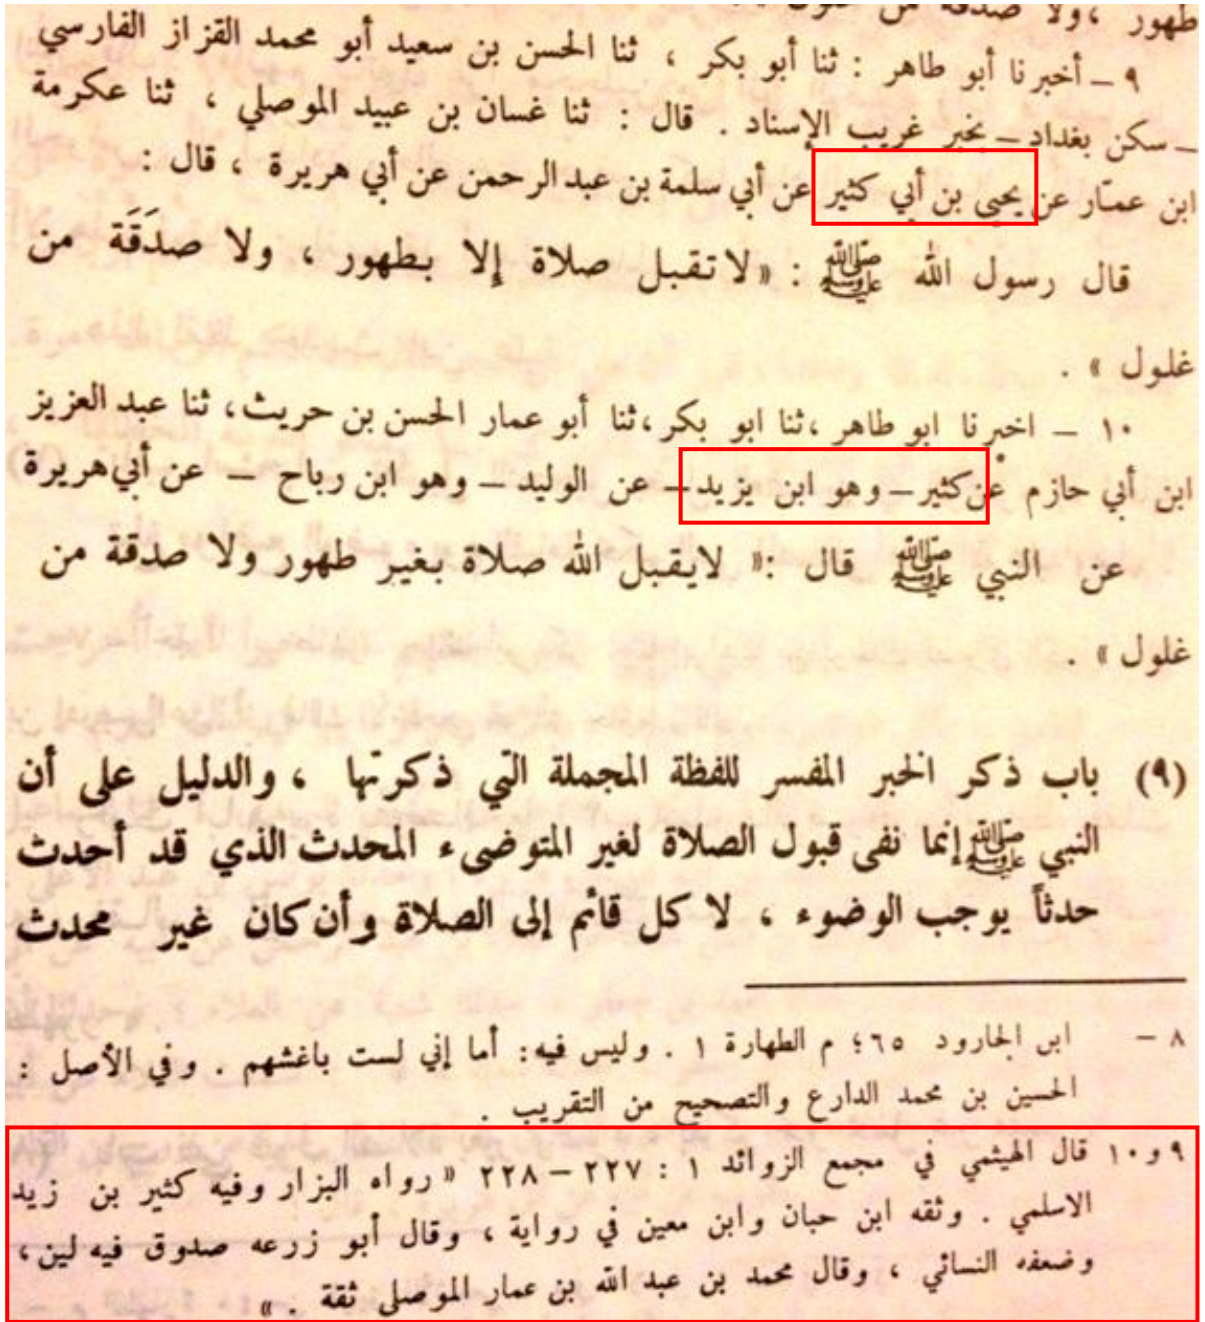 طهور ، ولا صدقة من
٩ ــ أخبرنا أبو طاهر : ثنا أبو بكر ، ثنا الحسن بن سعيد أبو محمد القزاز الفارسي
ــ سكن بغداد ــ بخبر غريب الإسناد . قال : ثنا غسان بن عبيد الموصلي ، ثنا عكرمة
ابن عمّار عن يحيى بن أبي كثير عن أبي سلمة بن عبد الرحمن عن أبي هريرة ، قال :
قال رسول الله ﷺ : « لا تقبل صلاة إلا بطهور ، ولا صدَقَة من
غلول » .
١٠ ــ اخبرنا ابو طاهر ،ثنا ابو بكر ،ثنا أبو عمار الحسن بن حريث، ثنا عبد العزيز
ابن أبي حازم عن كثير ــ وهو ابن يزيد ــ عن الوليد ــ وهو ابن رباح ــ عن أبي هريرة
عن النبي ﷺ قال :« لايقبل الله صلاة بغير طهور ولا صدقة من
غلول » .
(٩) باب ذكر الخبر المفسر للفظة المجملة التي ذكرتها ، والدليل على أن
النبي ﷺ إنما نفى قبول الصلاة لغير المتوضىء المحدث الذي قد أحدث
حدثاً يوجب الوضوء ، لا كل قائم إلى الصلاة وأن كان غير محدث
٨ – ابن الجارود ٦٥؛ م الطهارة ١ . وليس فيه: أما إني لست باغشهم . وفي الأصل :
الحسين بن محمد الدارع والتصحيح من التقريب .
٩ و ١٠ قال الهيثمي في مجمع الزوائد ١ : ٢٢٧ – ٢٢٨ « رواه البزار وفيه كثير بن زيد
الاسلمي . وثقه ابن حبان وابن معين في رواية ، وقال أبو زرعه صدوق فيه لين،
وضعفه النسائي ، وقال محمد بن عبد الله بن عمار الموصلي ثقة . »